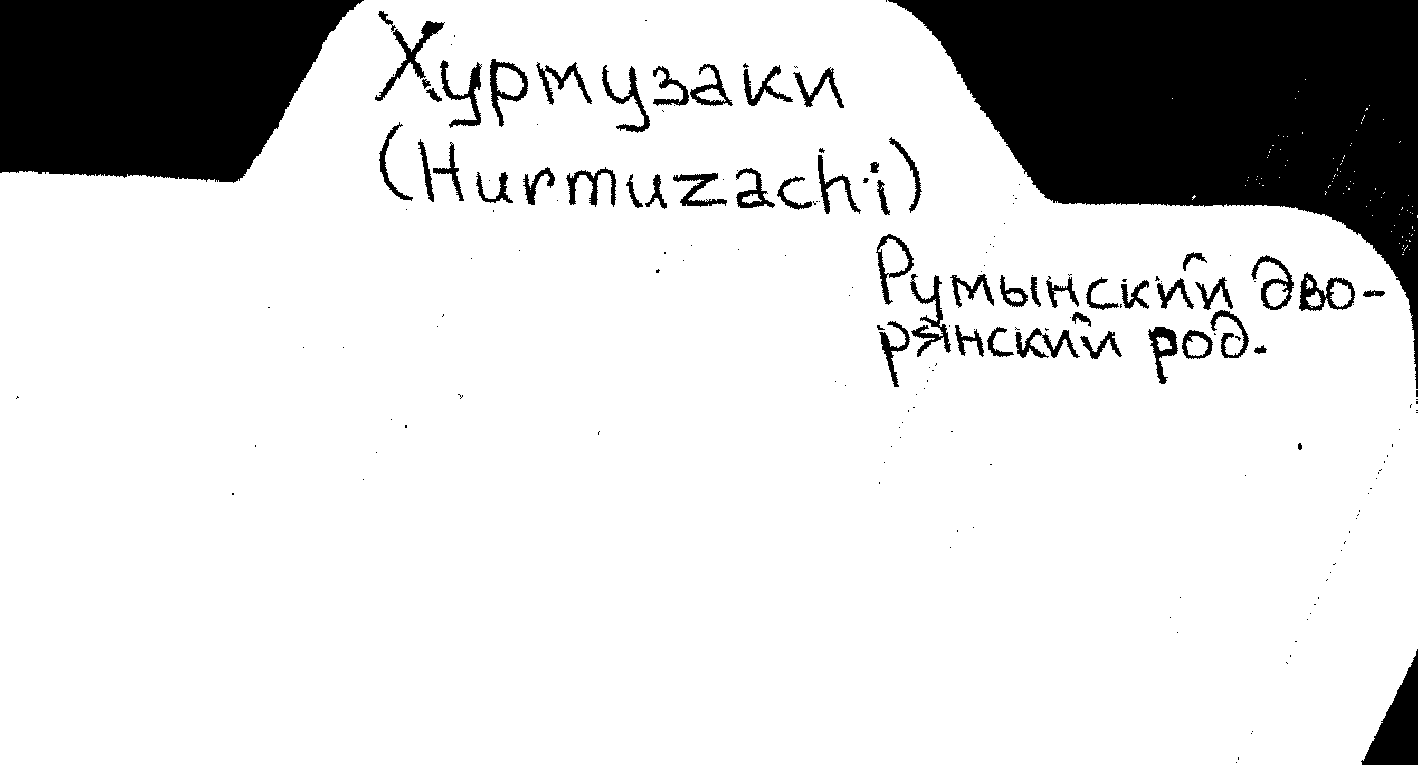 Хурмузаки
(Hurmuzachi)
Румынский дво-
рянский род.